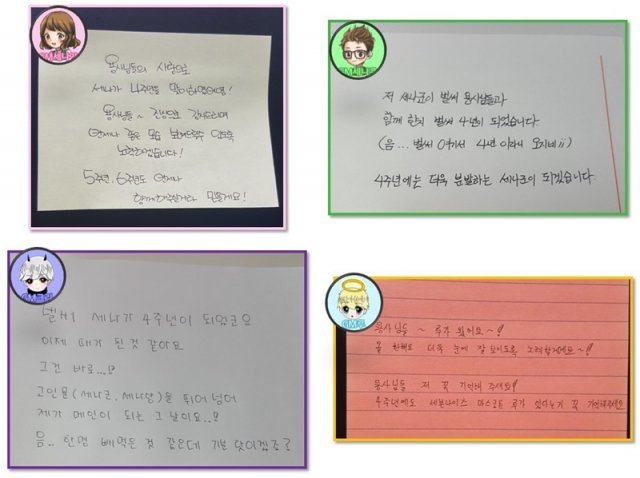 용사님들의 사랑으로
세나가 4주년을 맞이하였어요!
용사님들~ 진심으로 감사드리며
언제나 좋은 모습 보여드릴수 있도록
노력하겠습니다!
5주년, 6주년도 언제나
함께해주실거라 믿을게요!
저 세나코이 벌써 용사님들과
함께 한지 벌써 4년이 되었습니다
(음... 벌써 여기서 4년 이라니 오지네ii)
4주년에는 더욱 분발하는 세나코이 되겠습니다.
벌써 세나가 4주년이 되었군요
이제 때가 된것 같아요
그건 바로...!?
고인물(세나코, 세나양)을 뛰어넘어
제가 메인이 되는 그 날이요..?
음.. 한명 빼먹은 것 같은데 기분 탓이겠죠?
용사님들 ~ 루가 왔어요~!
올 한해도 더욱 눈에 잘 보이도록 노력할게요~!
용사님들 저 꼭 기억해 주세요!
4주년에도 세븐나이츠 마스코트 루가 있다는거 꼭 기억해주세요